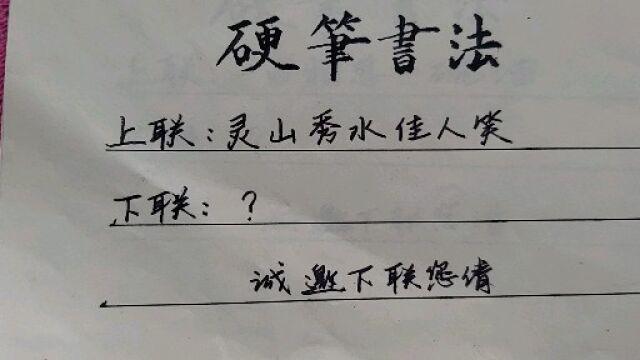 硬筆書法
上联：灵山秀水佳人笑
下联：？
诚邀下联您请